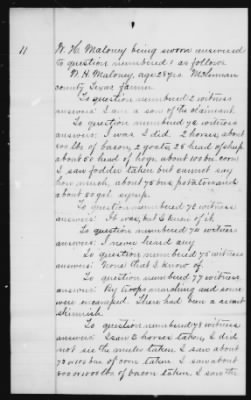 11
W. H. Maloney being sworn answered
to question numbered 1 as follows
W. H. Maloney, age 28 yrs. McLennan
county Texas farmer
To question numbered 2 witness
answers: I am a son of the claimant.
To question numbered 72 witness
answers: I was I did. 2 horses, about
lbs of bacon, 2 goats, 28 head of sheep
about 50 head of hogs about 100 bu. corn
I saw fodder taken but cannot say
how much, about 75 bus potatoes and
about 50 gal syrup.
To question numbered 73 witness
answers: It was, but I knew of it
To question numbered 74 witness
answers: I never heard any
To question numbered 75 witness
answers: None that I know of.
To question numbered 77 witness
answers: By troops marching and some
were encamped. There had been a
skirmish
To question numbered 78 witness
answers: I saw 2 horses taken, I did
not see the mules taken I saw about
75 or bus of corn taken I saw about
lbs of bacon taken. I saw the